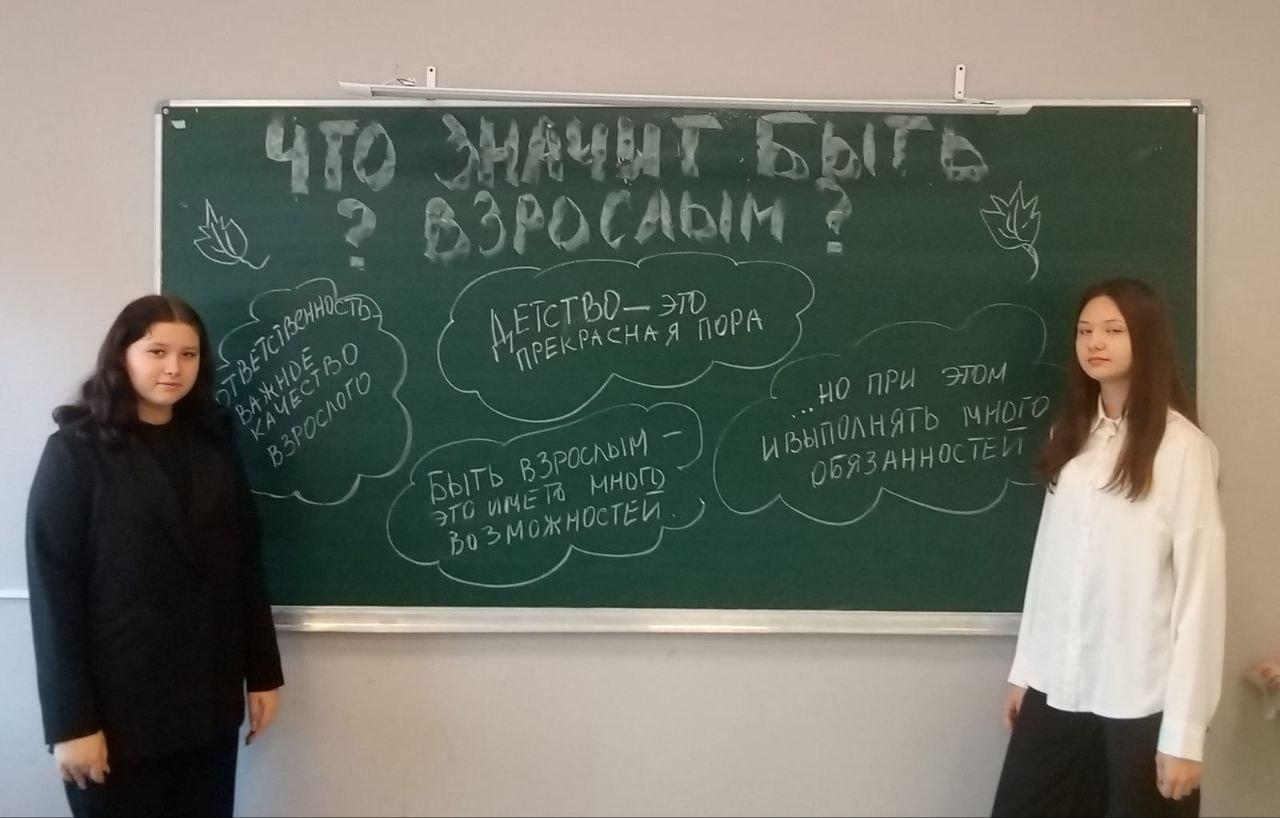 ЧТО ЗНАЧИТ БЫТЬ
? ВЗРОСЛЫМ ?
ОТВЕТСТВЕННОСТЬ-
ВАЖНОЕ
КАЧЕСТВО
ВЗРОСЛОГО
ДЕТСТВО — ЭТО
ПРЕКРАСНАЯ ПОРА
БЫТЬ ВЗРОСЛЫМ —
ЭТО ИМЕТЬ МНОГО
ВОЗМОЖНОСТЕЙ.
...НО ПРИ ЭТОМ
И ВЫПОЛНЯТЬ МНОГО
ОБЯЗАННОСТЕЙ